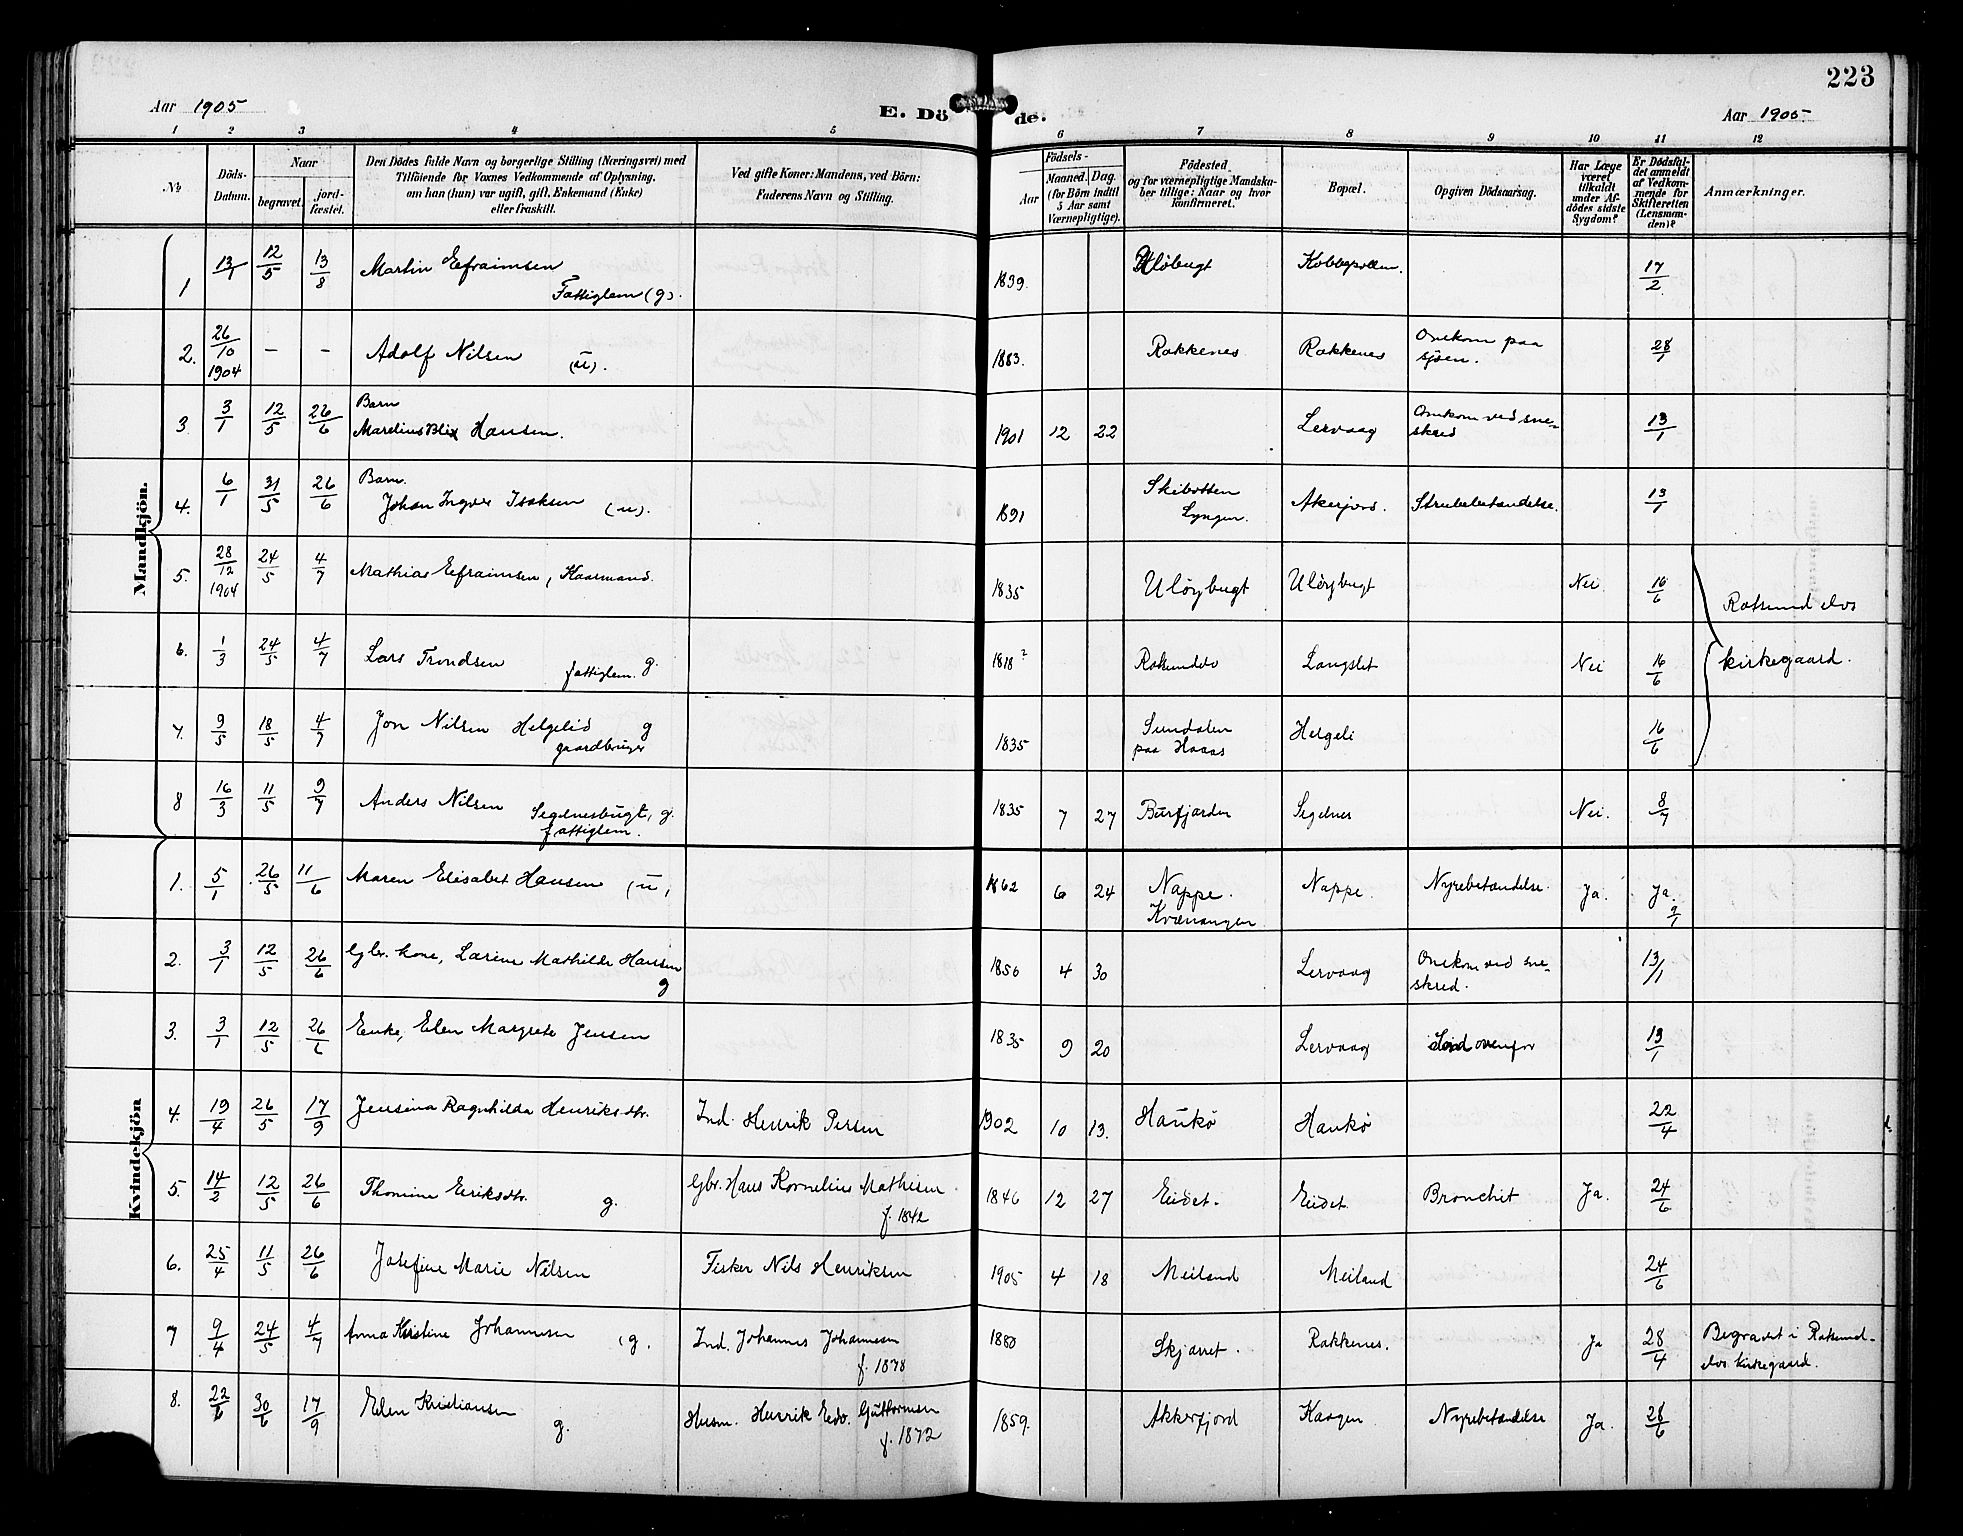 223
Aar 1905 E. Döde. Aar 1905
1 2 3 4 5 6 7 8 9 10 11 12
No
Döds-Datum.
Naar
begravet.
jord-fæstet.
Den Dödes fulde Navn og borgerlige Stilling (Næringsvei) med
Tilföiende for Voxnes Vedkommende af Oplysning,
om han (hun) var ugift, gift, Enkemand (Enke)
eller fraskilt.
Ved gifte Koner: Mandens, ved Börn:
Faderens Navn og Stilling.
Födsels-
Aar
Maaned. Dag.
(for Börn indtil
5 Aar samt
Værnepligtige).
Födested
og for værnepligtige Mandska-
ber tillige: Naar og hvor
konfirmeret.
Bopæl.
Opgiven Dödsaarsag.
Har Læge
været
tilkaldt
under Af-
dödes sidste
Sygdom?
Er Dödsfal-
det anmeldt
af Vedkom-
mende for
Skifteretten
(Lensman-
den)?
Anmærkninger.
Mandkjön.
1 13/1 12/5 13/8 Martin Eefraimsen Fattiglem (g). 1839. Ulöbugt Kobbepollen. 17/2
2. 26/10 1904 - - Adolf Nilsen (u). 1883. Rakkenes Rakkenes Omkom paa sjöen. 28/1
3 3/1 12/5 26/6 Barn Marelius Blix Hansen. 1901 12 22 Lervaag Omkom ved sne-skred 13/1
4. 6/1 31/5 26/6 Barn. Johan Ingver Isaksen (u). 1891 Skibotten Lyngen. Akerjord. Strubebetændelse. 13/1
5. 28/12 1904 24/5 4/7 Mathias Eefraimsen, Kaarmand. 1835 Ulöybugt Ulöybugt Nei. 16/6 Rotsund elvs
6. 1/3 24/5 4/7 Lars Trondsen fattiglem. g. 1818? Rotsundelv Langslet Nei 16/6 kirkegaard.
7. 9/5 18/5 4/7 Jon Nilsen Helgelid g gaardbruger 1835 Sundalen paa Haaas Helgeli 16/6
8 16/3 11/5 9/7 Anders Nilsen Segelnesbugt, g. fattiglem. 1835 7 27 Burfjorden Segelnes Nei. 8/7
Kvindekjön
1. 5/1 26/5 11/6 Maren Elisabet Hansen (u, 1862 6 24 Nappe. Kvænangen Nappe. Nyrebetændelse. Ja. Ja. 9/1
2. 3/1 12/5 26/6 Gbr. kone, Larine Mathilde Hansen g 1856 4 30 Lervaag Omkom ved sne-skred. 13/1
3. 3/1 12/5 26/6 Enke, Elen Margrete Jensen 1835 9 20 Lervaag ovenfor 13/1
4. 19/4 26/5 17/9 Jensina Ragnhilda Henriksdtr. Ind. Henrik Persen 1902 10 13. Haukö Haukö 22/4
5. 14/2 12/5 26/6 Thomine Eeriksdtr. g. Gbr. Hans Kornelius Mathisen. f. 1842 1846 12 27 Eidet. Eidet. Bronchit Ja. 24/6
6. 25/4 11/5 26/6 Josefine Marie Nilsen Fisker Nils Henriksen 1905 4 18 Meiland Meiland 24/6
7 9/4 24/5 4/7 Anna Kristine Johannesen (g. Ind. Johannes Johannesen f. 1878 1880 Skjavet. Rakkenes. Ja 28/4 Begravet i Rotsund-elvs kirkegaard.
8. 22/6 30/6 17/9 Elen Kristiansen g. Husm. Henrik Edv. Guttormsen f. 1872 1859. Akkerfjord Kaagen Nyrebetændelse Ja. 28/6